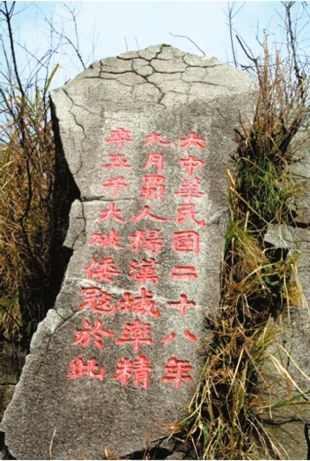 大中華民國二十八年
九月蜀人楊漢域率精
卒五千大破倭寇於此